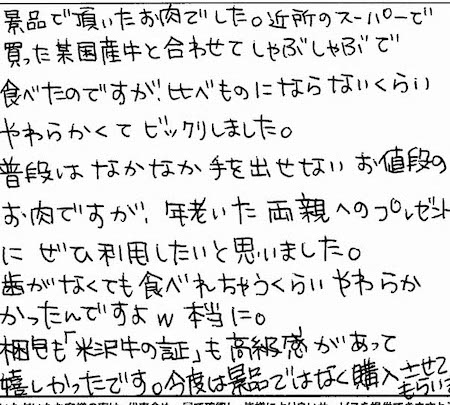 景品で頂いたお肉でした。近所のスーパーで
買った某国産牛と合わせてしゃぶしゃぶで
食べたのですが、比べものにならないくらい
やわらかくてビックリしました。
普段はなかなか手を出せないお値段の
お肉ですが、年老いた両親へのプレゼント
にぜひ利用したいと思いました。
歯がなくても食べれちゃうくらいやわらか
かったんですよw 本当に。
梱包も「米沢牛の証」も高級感があって
嬉しかったです。今度は景品ではなく購入させて
もらいます